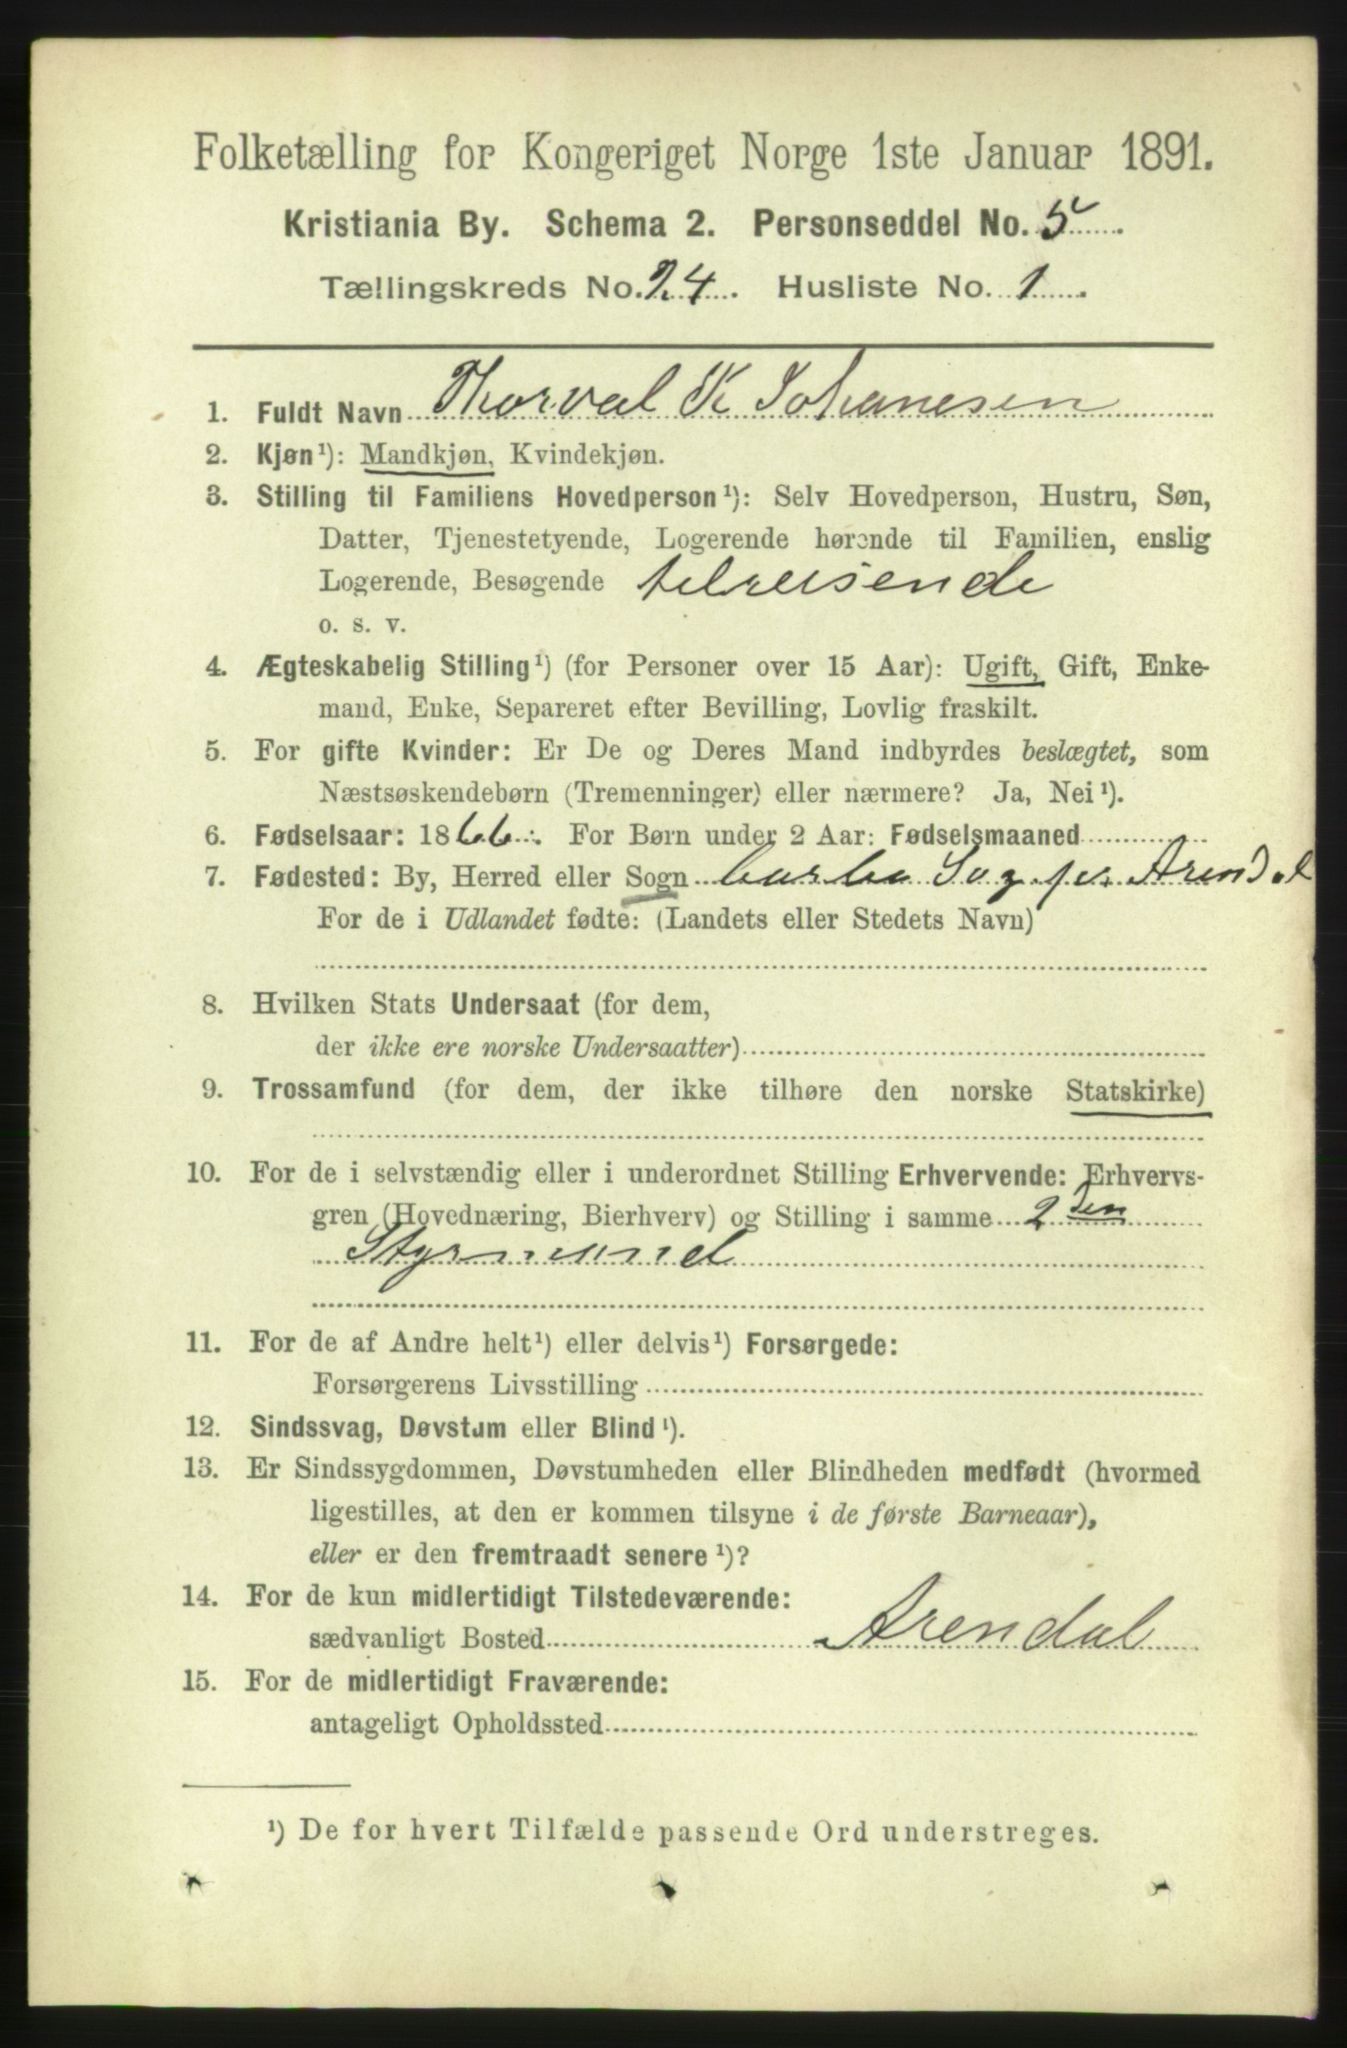 Folketælling for Kongeriget Norge 1ste Januar 1891.
Kristiania By. Schema 2. Personseddel No. 5
Tællingskreds No. 24. Husliste No. 1.
1. Fuldt Navn Thorval K Johanesen
2. Kjøn¹): Mandkjøn, Kvindekjøn.
3. Stilling til Familiens Hovedperson¹): Selv Hovedperson, Hustru, Søn,
Datter, Tjenestetyende, Logerende hørende til Familien, enslig
Logerende, Besøgende telreisende
o. s. v.
4. Ægteskabelig Stilling¹) (for Personer over 15 Aar): Ugift, Gift, Enke-
mand, Enke, Separeret efter Bevilling, Lovlig fraskilt.
5. For gifte Kvinder: Er De og Deres Mand indbyrdes beslægtet, som
Næstsøskendebørn (Tremenninger) eller nærmere? Ja, Nei¹).
6. Fødselsaar: 1866. For Børn under 2 Aar: Fødselsmaaned
7. Fødested: By, Herred eller Sogn barbo Arendal
For de i Udlandet fødte: (Landets eller Stedets Navn)
8. Hvilken Stats Undersaat (for dem,
der ikke ere norske Undersaatter)
9. Trossamfund (for dem, der ikke tilhøre den norske Statskirke)
10. For de i selvstændig eller i underordnet Stilling Erhvervende: Erhvervs-
gren (Hovednæring, Bierhverv) og Stilling i samme 2den
Styrmand
11. For de af Andre helt¹) eller delvis¹) Forsørgede:
Forsørgerens Livsstilling
12. Sindssvag, Døvstum eller Blind¹).
13. Er Sindssygdommen, Døvstumheden eller Blindheden medfødt (hvormed
ligestilles, at den er kommen tilsyne i de første Barneaar),
eller er den fremtraadt senere¹)?
14. For de kun midlertidigt Tilstedeværende:
sædvanligt Bosted Arendal
15. For de midlertidigt Fraværende:
antageligt Opholdssted
¹) De for hvert Tilfælde passende Ord understreges.